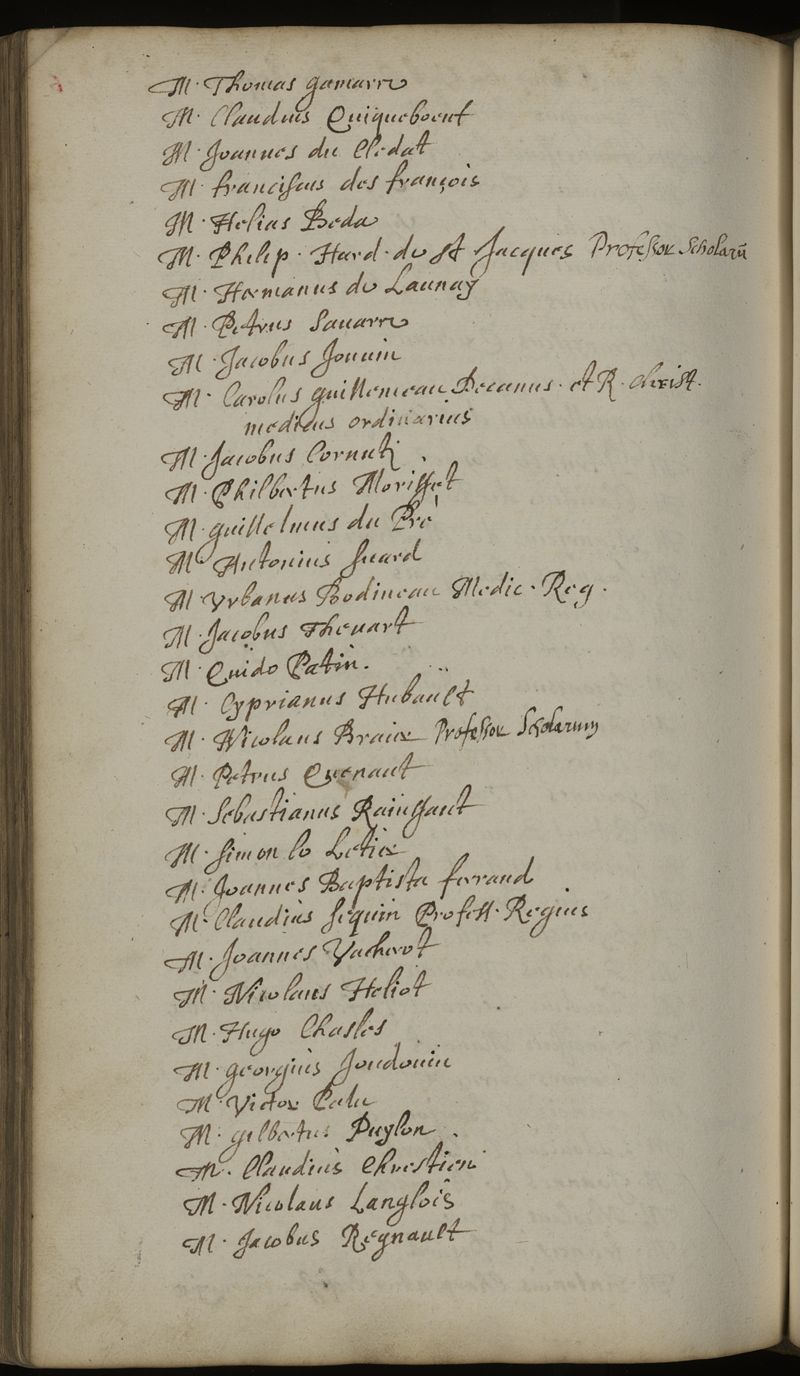 M. Thomas gamarre
M. Claudius Quiqueboeuf
M. Joannes du Cledat
M. franciscus des françois
M. Helias Beda
M. Philip. Hard. de st Jacques Professor Scholarū
M. Hermanus de Launay
M. Petrus Sauarre
M. Jacobus Jouuin
M. Carolus guillemeau Decanus. et R. christ.
medicus ordinarius
M. Jacobus Cornuti
M. Philbertus Morisset
M. guillelmus du Pré
M. Antonius Suard
M. Vrbanus Bodineau Medic. Reg.
M. Jacobus Theuart
M. Guido Patin.
M. Cyprianus Hubault
M. Nicolaus Braier Professor Scholarum
M. Petrus Guenaut
M. Sebastianus Rainssant
M. Simon le Letier
M. Joannes Baptista ferrand
M. Claudius Seguin Profess. Regius
M. Joannes Vacherot
M. Nicolaus Heliot
M. Hugo Chasles
M. georgius Joudouin
M. Victor Palu
M. gilbertus Puylon
M. Claudius Chrestien
M. Nicolaus Langlois
M. Jacobus Regnault